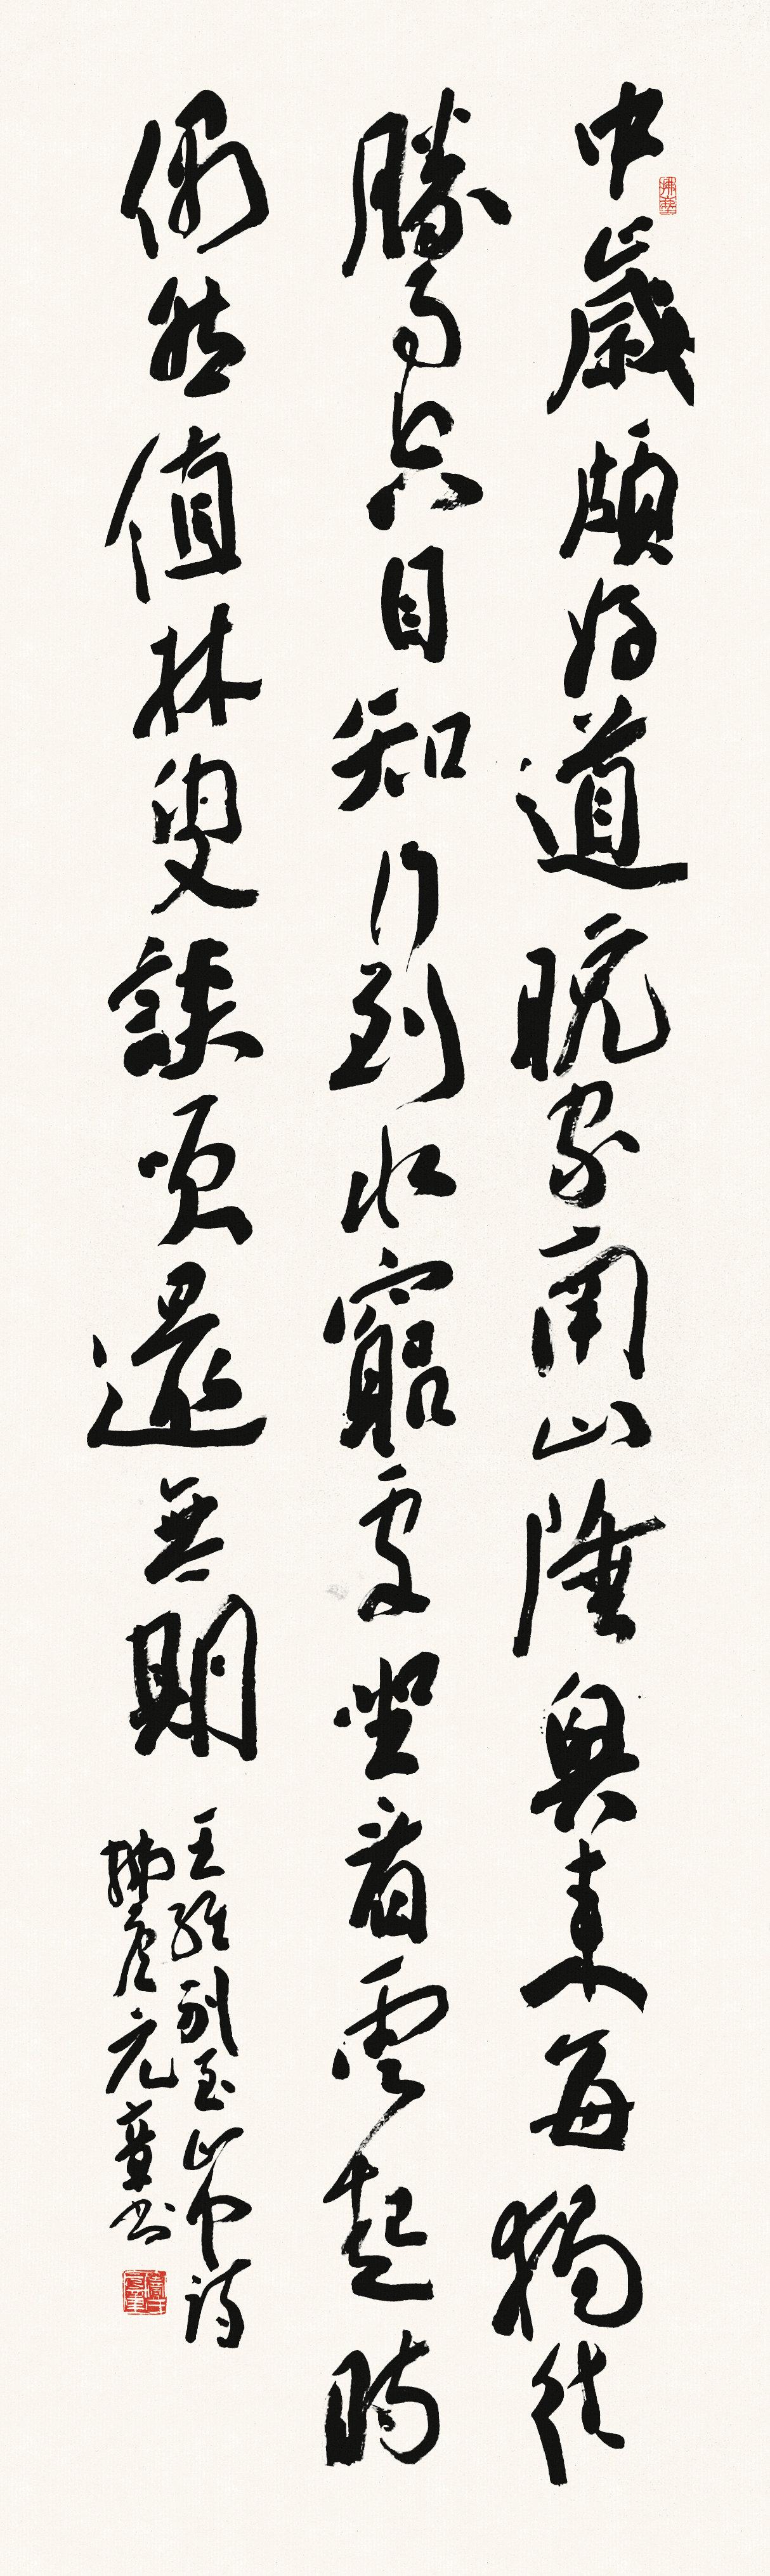 中歲頗好道晚家南山陲興來每獨往
勝事空自知行到水竆處坐看雲起時
偶然值林叟談咲還無期
王維山中詩
元章書